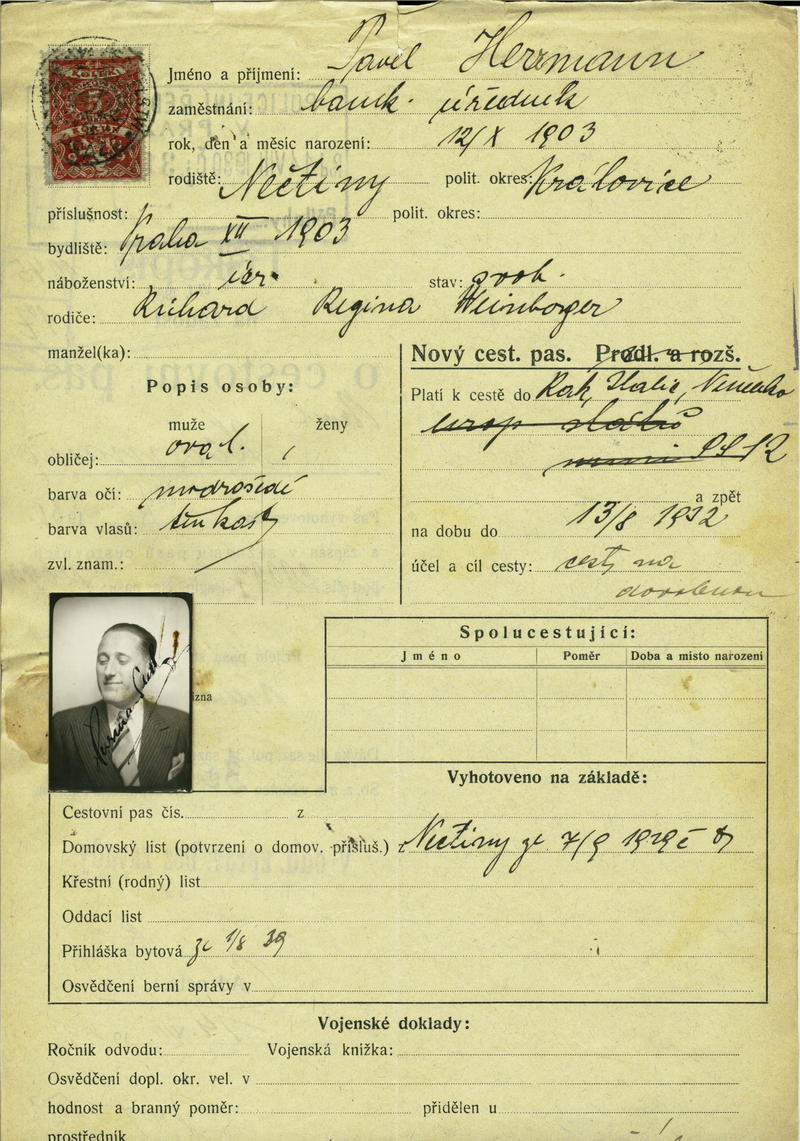 KOLEK
Jméno a příjmení: Pavel Herrmann
zaměstnání: bank. úředník
rok, den a měsíc narození: 12/X 1903
rodiště: Nečtiny polit. okres: Kralovice
příslušnost: polit. okres:
bydliště: Praha XII 1903
náboženství: stav: svob.
rodiče: Richard Regina Weinberger
manžel(ka):
Nový cest. pas. Prodl. a rozš.
Popis osoby:
Platí k cestě do Rak, Italie, Německo
muže ženy
evrop států
obličej: oval.
mimo SSSR
barva očí: modrošedé
a zpět
barva vlasů:
na dobu do 13/8 1932
zvl. znam.:
účel a cíl cesty: cesty na
dovolenou
Spolucestující:
Jméno Poměr Doba a místo narození
izna
Vyhotoveno na základě:
Cestovní pas čís. z
Domovský list (potvrzení o domov. přísluš.) z Nečtiny ze 7/9 1929 č
Křestní (rodný) list
Oddací list
Přihláška bytová ze 1/8 39
Osvědčení berní správy v
Vojenské doklady:
Ročník odvodu: Vojenská knížka:
Osvědčení dopl. okr. vel. v
hodnost a branný poměr: přidělen u
prostředník